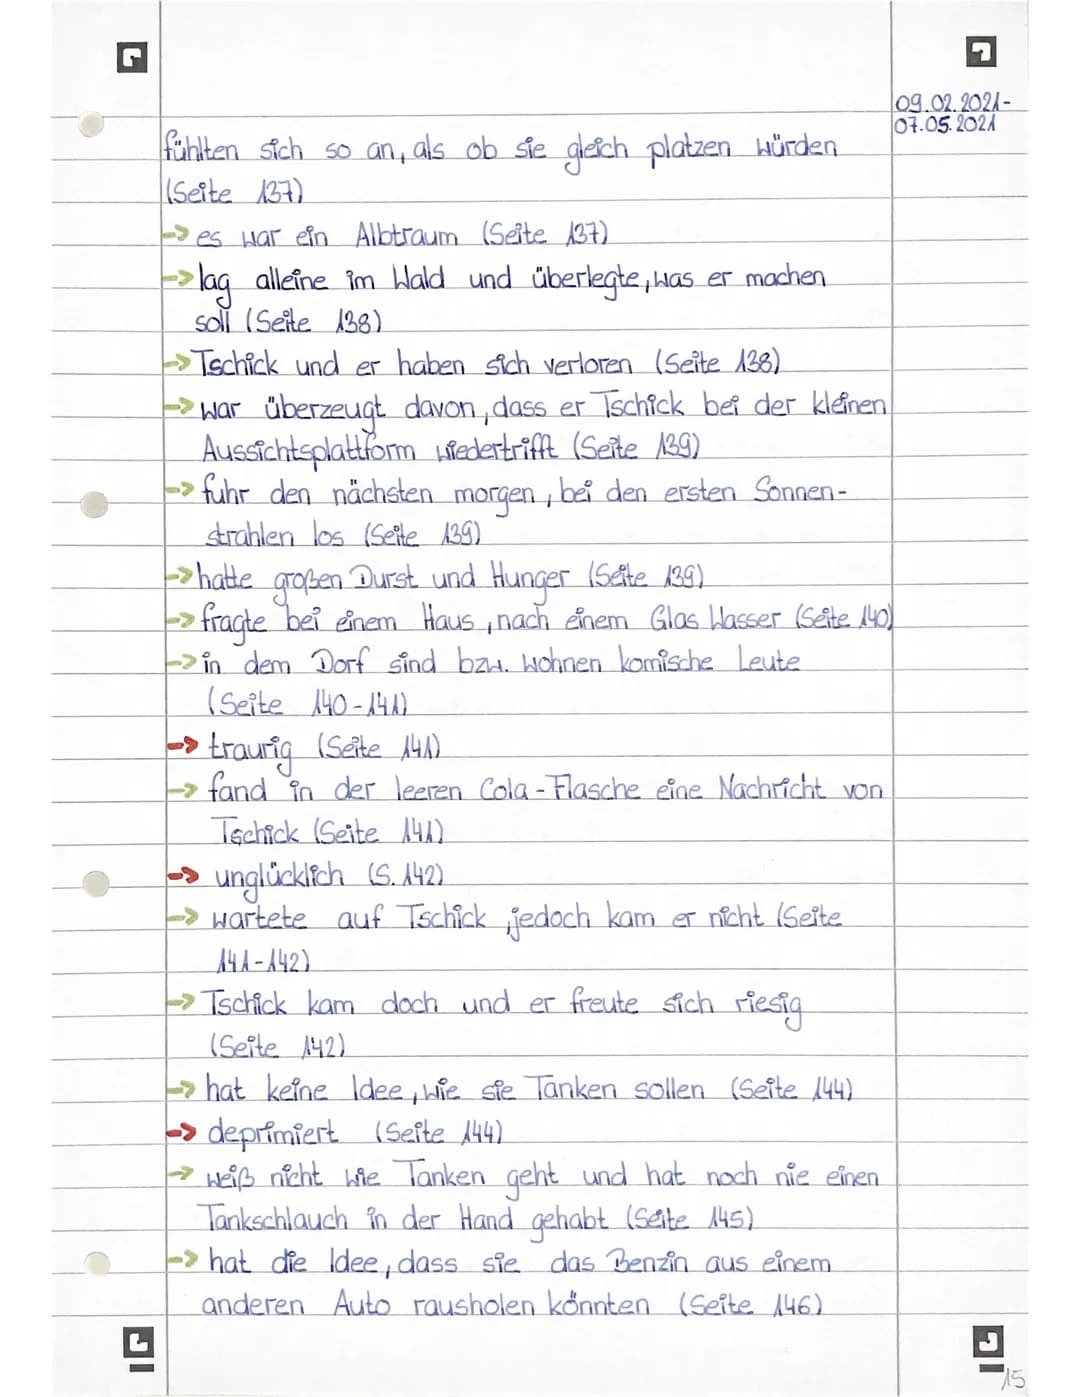 09.02.2021-
07.05.2021
fühlten sich so an, als ob sie gleich platzen würden
(Seite 137)
-> es war ein Albtraum (Seite 137)
-> lag alleine im Wald und überlegte, was er machen
soll (Seite 138)
-> Tschick und er haben sich verloren (Seite 138)
-> war überzeugt davon, dass er Tschick bei der kleinen
Aussichtsplattform wiedertrifft (Seite 139)
-> fuhr den nächsten morgen, bei den ersten Sonnen-
strahlen los (Seite 139)
-> hatte großen Durst und Hunger (Seite 139)
-> fragte bei einem Haus, nach einem Glas Wasser (Seite 140)
-> in dem Dorf sind bzw. wohnen komische Leute
(Seite 140-141)
-> traurig (Seite 141)
-> fand in der leeren Cola-Flasche eine Nachricht von
Tschick (Seite 141)
-> unglücklich (S. 142)
-> wartete auf Tschick, jedoch kam er nicht (Seite
141-142)
-> Tschick kam doch und er freute sich riesig
(Seite 142)
-> hat keine Idee, wie sie Tanken sollen (Seite 144)
-> deprimiert (Seite 144)
-> weiß nicht wie Tanken geht und hat noch nie einen
Tankschlauch in der Hand gehabt (Seite 145)
-> hat die Idee, dass sie das Benzin aus einem
anderen Auto rausholen könnten (Seite 146)
15